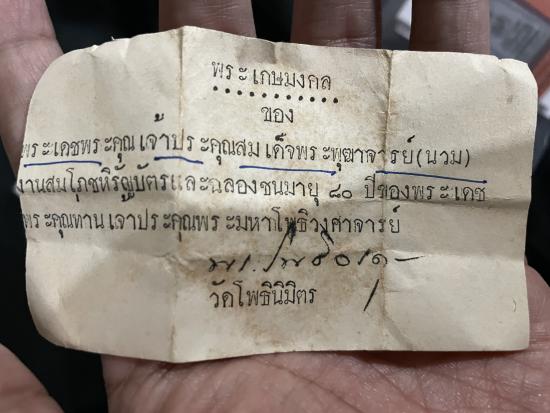 พระเกษมงคล
ของ
พระเดชพระคุณ เจ้าประคุณสมเด็จพระพุฒาจารย์(นวม)
งานสมโภชหิรัญบัตรและฉลองชนมายุ ๘๐ ปีของพระเดช
พระคุณทานเจ้าประคุณพระมหาโพธิวงศาจารย์
วัดโพธินิมิตร